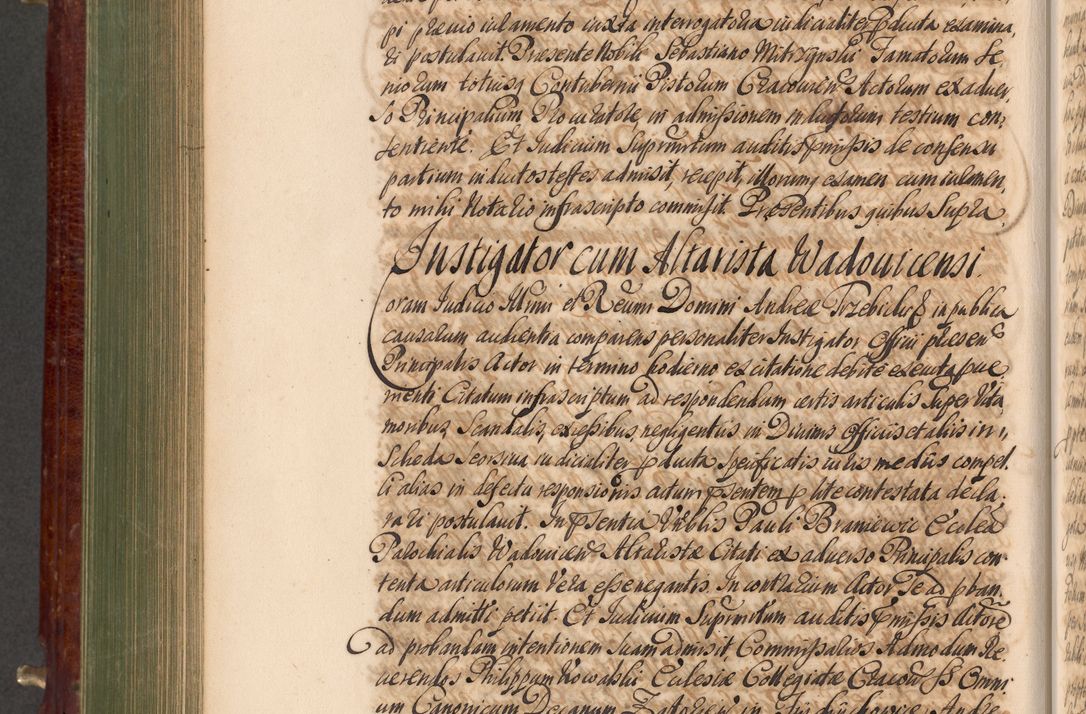 pi prævio iuramento iuxta interrogatoria iudicialiter pducta examina,
ri postulavit. Præsente Nobile Sebastiano Mitrzynski Famatorum Se,
niorum totiusq Contubernii Pistorum Cracovien Actorum ex adver,
so Principalium Procuratore in admissionem inductorum testium con,
sentiente. Et Iudicium Suprmitum auditis pmissis de consensu
partium inductos testes admisit, recepit, illorumq examen cum iuramen,
to mihi Notario infrascripto commisit. Præsentibus quibus Supra.
Instigator cum Altarista Wadovicensi.
Coram Iudicio Illrmi et Reumi Domini Andreæ Trzebicki in publica
causarum audientia comparens personaliter Instigator Officii præsens
Principalis Actor in termino hodierno ex citatione debite executa pue
nienti Citatum infrascriptum ad respondendum certis articulis super Vita
moribus, Scandalis, excessibus, negligentiis in Divinis Officiis et aliis in
Scheda Seorsiva iudicialiter pducta specificatis iuris mediis compel,
li alias in defectu responsionis actum psentem p lite contestata decla,
rari postulavit. In psentia Vrblis Pauli Braniewic Ecclæ
Parochialis Wadovicen Altaristæ Citati ex adverso Principalis con
tenta articulorum Vera esse negantis. In contrarium Actor Se ad pban,
dum admitti petiit. Et Iudicium Suprmitum auditis pmissis Actore
ad probandum intentionem suam admisit, Commissarios Admodum Re,
verendos Philippum Nowalski Ecclesiæ Collegiatæ Cracov SS Omni
um Canonicum Decanum Zatorien in